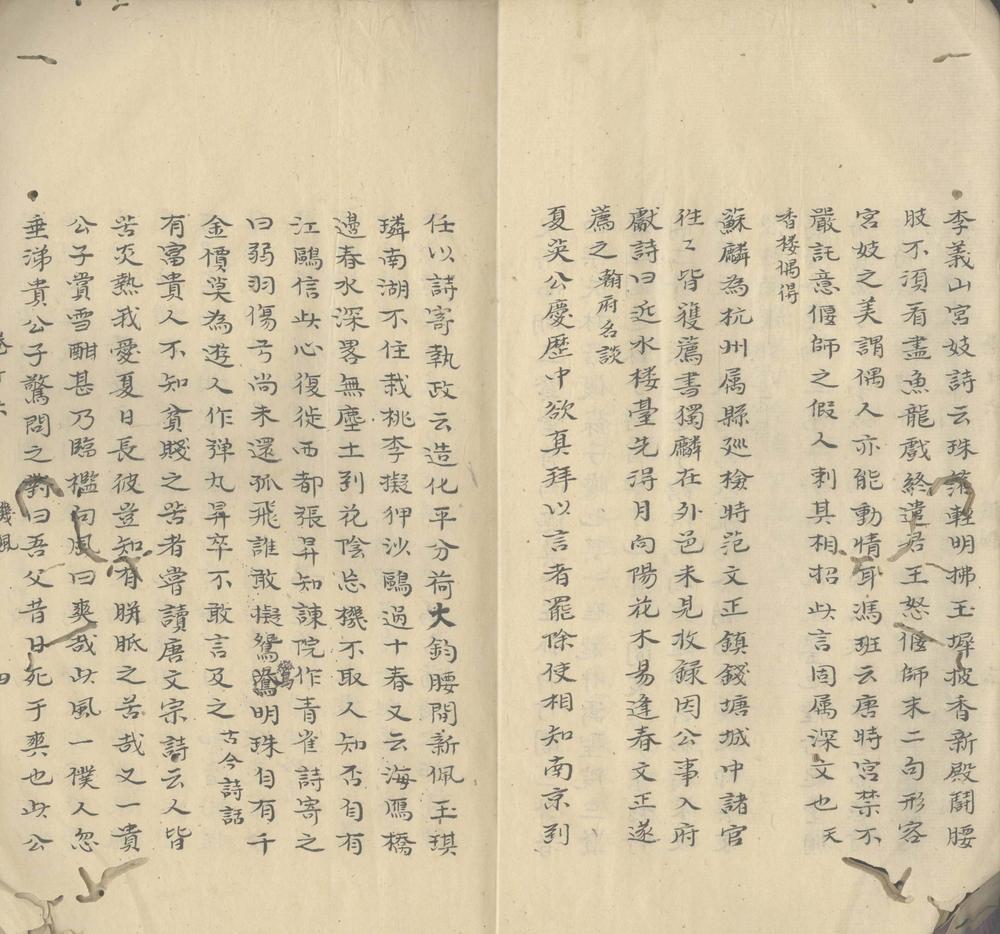 李義山宮妓詩云珠箔輕明拂玉墀披香新殿鬪腰
肢不須看盡魚龍戲終遣君王怒偃師末二句形容
宮妓之美謂偶人亦能動情耳馮班云唐時宮禁不
嚴託意偃師之假人刺其相招此言固属深文也天
香楼偶得
蘇麟為杭州属縣廵檢時范文正鎮錢塘城中諸官
徃〻皆獲薦書獨麟在外邑未見收録因公事入府
獻詩曰近水楼臺先得月向陽花木易逢春文正遂
薦之翰府名談
夏英公慶歷中欲真拜以言者罷除使相知南京到
任以詩寄執政云造化平分荷大鈞腰間新佩玉琪
璘南湖不住栽桃李擬狎沙鷗過十春又云海鴈橋
邉春水深畧無塵土到花陰忘機不取人知否自有
江鷗信此心復徙西都張昇知諫院作青雀詩寄之
曰弱羽傷弓尚未還孤飛誰敢擬鴛鸞明珠自有千
金價莫為遊人作弹丸昇卒不敢言及之古今詩話
有富貴人不知貧賤之苦者嘗讀唐文宗詩云人皆
苦炎熱我愛夏日長彼豈知有胼胝之苦哉又一貴
公子賞雪酣甚乃臨檻向風曰爽哉此風一僕人忽
垂涕貴公子驚問之對曰吾父昔日死于爽也此公